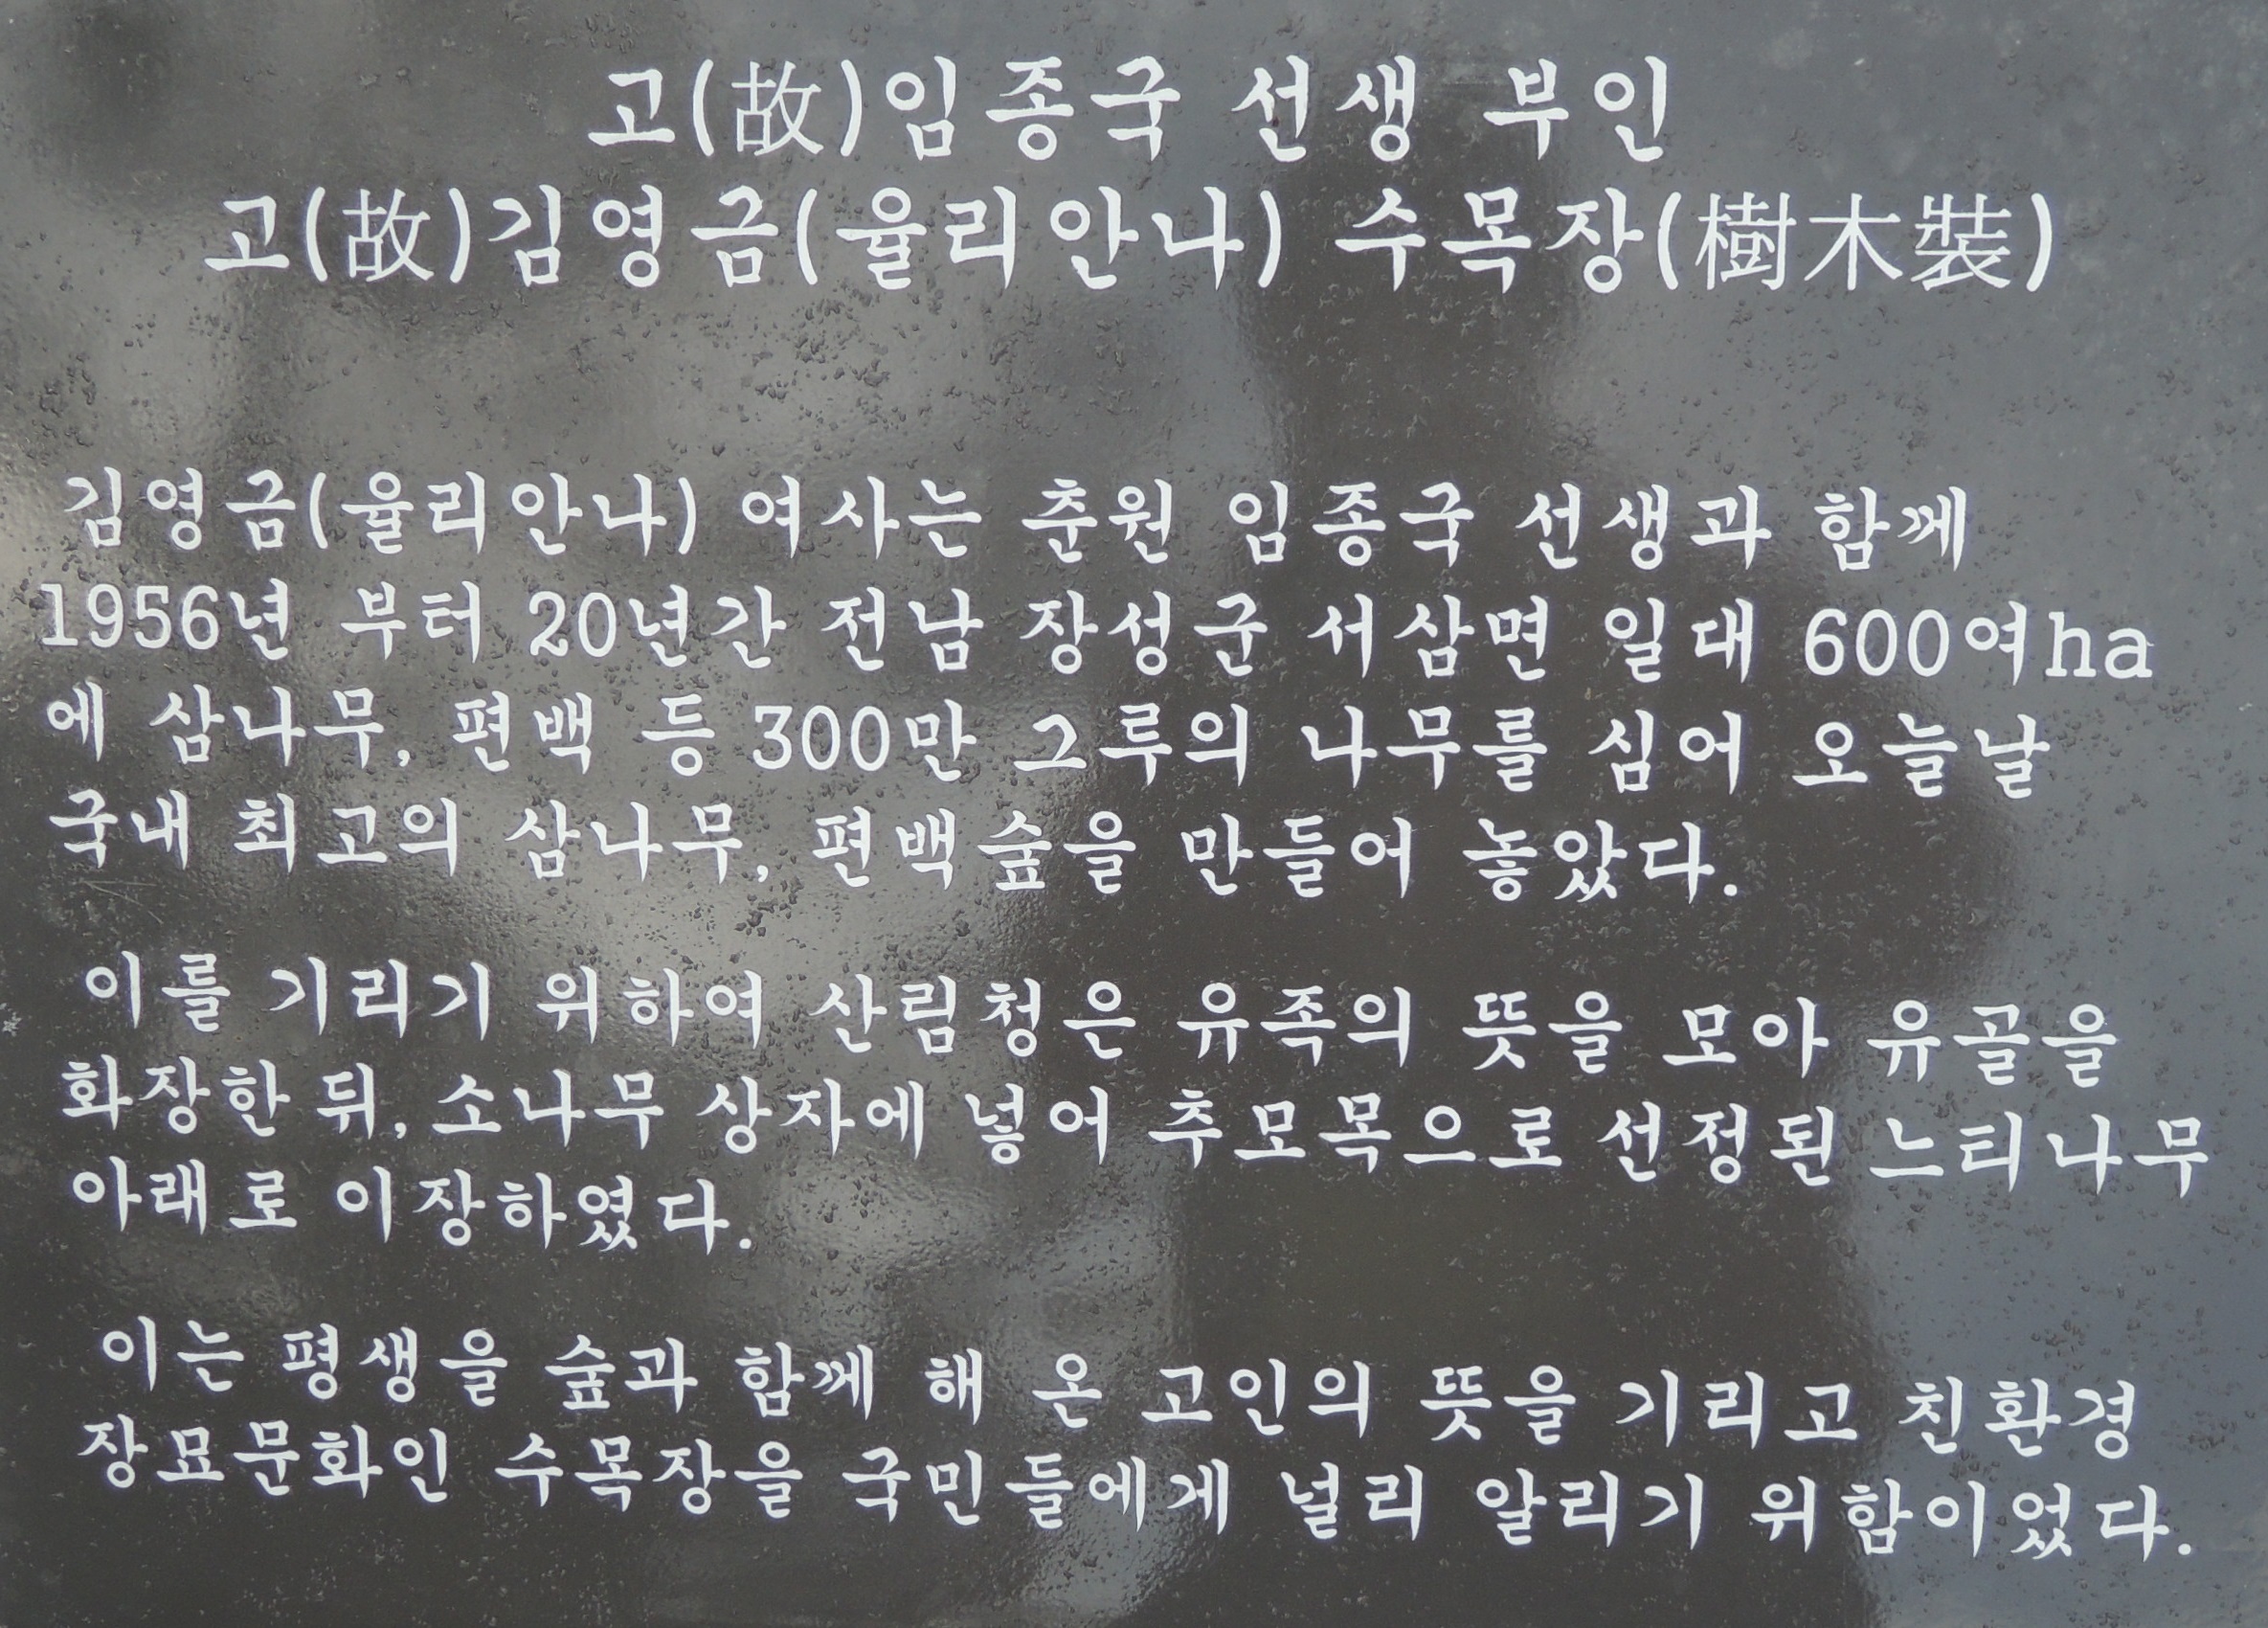 고(故)임종국 선생 부인
고(故)김영금(율리안나) 수목장(樹木裝)
김영금(율리안나) 여사는 춘원 임종국 선생과 함께
1956년 부터 20년간 전남 장성군 서삼면 일대 600여ha
에 삼나무, 편백 등 300만 그루의 나무를 심어 오늘날
국내 최고의 삼나무, 편백숲을 만들어 놓았다.
이를 기리기 위하여 산림청은 유족의 뜻을 모아 유골을
화장한 뒤, 소나무 상자에 넣어 추모목으로 선정된 느티나무
아래로 이장하였다.
이는 평생을 숲과 함께 해 온 고인의 뜻을 기리고 친환경
장묘문화인 수목장을 국민들에게 널리 알리기 위함이었다.